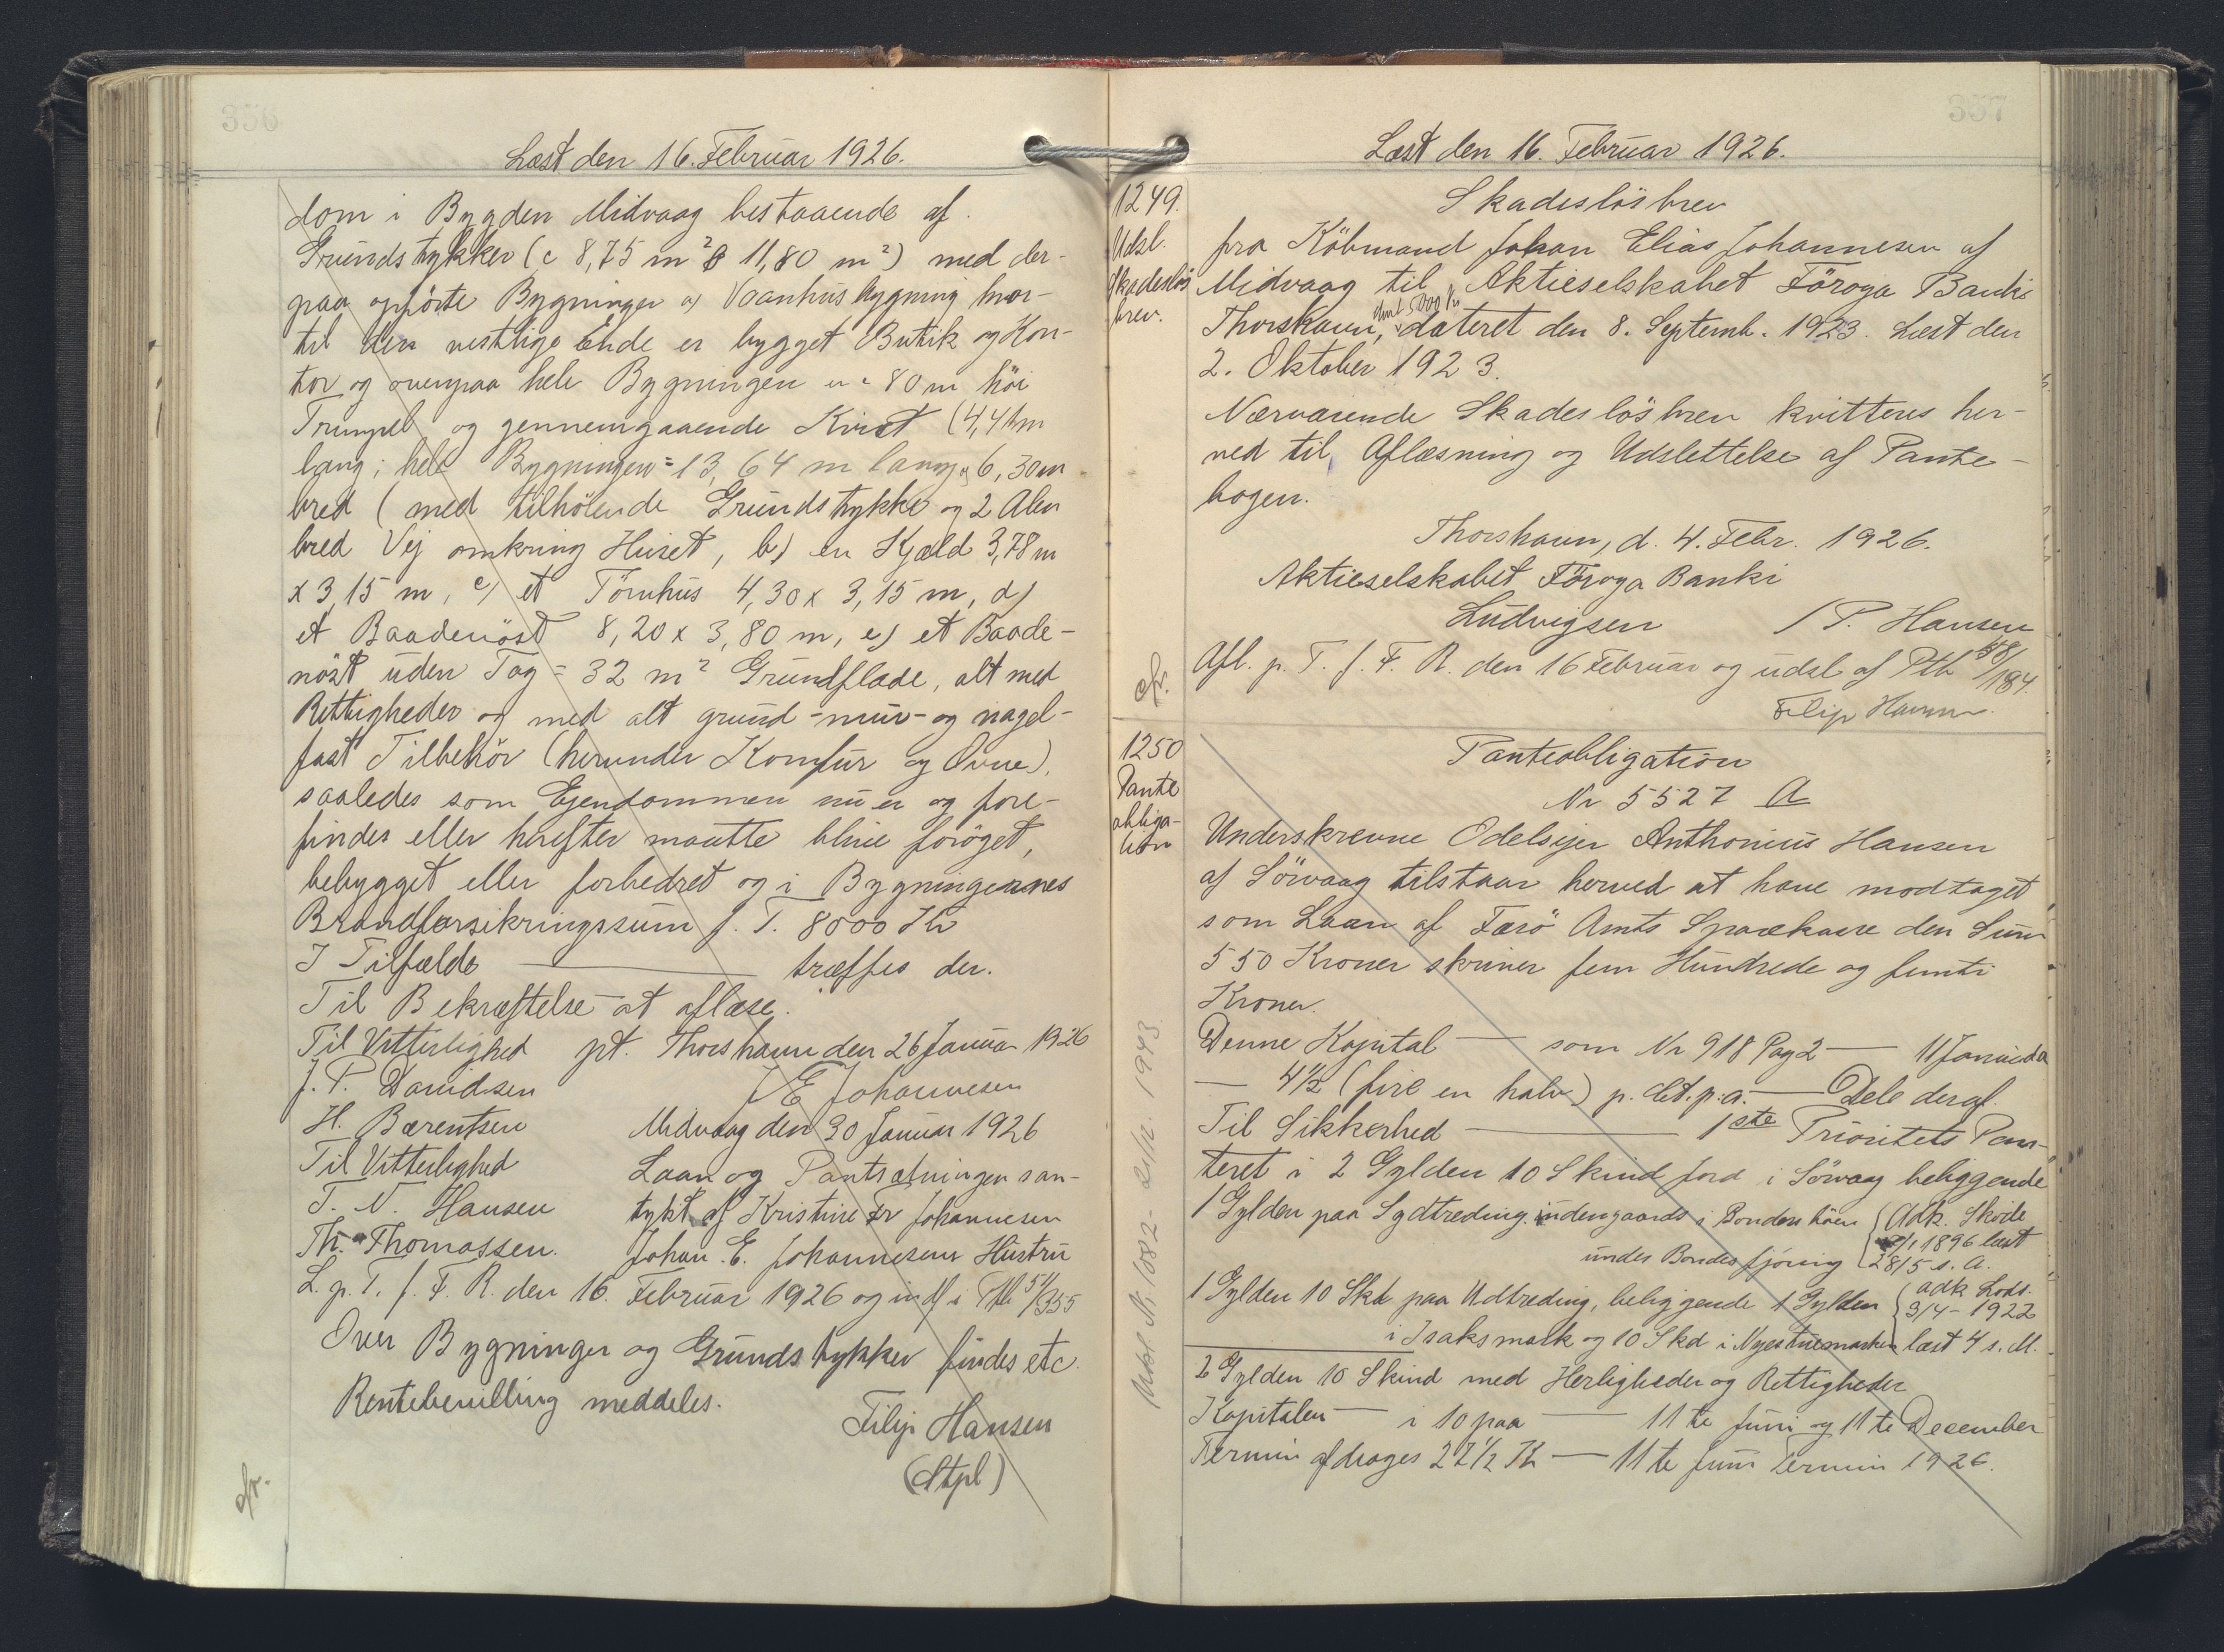 356
Læst den 16. Februar 1926.
dom i Bygden Midvaag bestaaende af
Grundstykker (c 8,75 m² 11,80 m²) med der-
paa opförte Bygninger a) Vaanhusbygning hvor-
til den vestlige Ende er bygget Butik og Kon-
tor og ovenpaa hele Bygningen 80 m höi
Trempel og gennemgaaende Kvist (4,41m
lang; hele Bygningen = 13,64 m lang, 6,30m
bred (med tilhörende Grundstykke og 2 Alen
bred Vej omkring Huset, b) en Kjæld 3,78 m
x 3,15 m, c) et Törnhus 4,30 x 3,15 m, d)
et Baadenöst 8,20 x 3,80 m, e) et Baade-
nöst uden Tag = 32 m² Grundflade, alt med
Rettigheder og med alt grund-mur- og nagel-
fast Tilbehör (herunder Komfur og Ovne),
saaledes som Ejendommen nu er og fore-
findes eller herefter maatte blive foröget,
bebygget eller forbedret og i Bygningernes
Brandforsikringssum f. T. 8000 Kr
I Tilfælde — træffes der.
Til Bekræftelse at aflæse.
Til Vitterlighed pt. Thorshavn den 26 Januar 1926
J. P. Davidsen J E Johannesen
H. Bærentsen Midvaag den 30 Januar 1926
Til Vitterlighed Laan og Pantsætningen sam-
T. N. Hansen tykt af Kristine Fr Johannesen
Th. Thomassen. Johan. E. Johannesens Hustru
L. p. T. f. F. R. den 16. Februar 1926 og indf i Ptb 51/355
Over Bygninger og Grundstykker findes etc.
Rentebevilling meddeles.
Filip Hansen
(Stpl)
cfr.
357
Læst den 16. Februar 1926.
1249.
Udsl.
Skadeslös
brev.
Skadeslösbrev
fra Köbmand Johan Elias Johannesen af
Midvaag til Aktieselskabet Föroya Banki
Thorshavn, dateret den 8. Septemb. 1923. Læst den
2. Oktober 1923.
Nærværende Skadeslösbrev kvitteres her-
ved til Aflæsning og Udslettelse af Pante-
bogen.
Thorshavn, d. 4. Febr. 1926.
Aktieselskabet Föroya Banki
Ludvigsen / P. Hansen
Afl. p. T. f. F. R. den 16 Februar og udsl af Ptb 48/184.
Filip Hansen.
cfr.
1250
Pante
obliga-
tion
Panteobligation
Nr 5527 A
Underskrevne Odelsejer Anthonius Hansen
af Sörvaag tilstaar herved at have modtaget
som Laan af Færö Amts Sparekasse den Sum
550 Kroner skriver fem Hundrede og femti
Kroner.
Denne Kapital — som Nr 918 Pag 2 — 11 Januar da
— 4½ (fire en halv) p. Ct. p. a. — Dele deraf.
Til Sikkerhed — 1ste Prioritets Pan-
teret i 2 Gylden 10 Skind Jord i Sörvaag beliggende
1 Gylden paa Sydtreding indengaards i Bonden höin { Adk. Sköde
/1 1896 læst
under Bondesfjöring { 28/5 s. A.
1 Gylden 10 Skd paa Udtreding, beliggende 1 Gylden { adk Lods.
3/4 - 1922
i Isaksmark og 10 Skd i Nyestuemarken læst 4 s. M.
2 Gylden 10 Skind med Herligheder og Rettigheder
Kapitalen — i 10 paa — 11te Juni og 11te December
Termin afdrages 27½ Kr — 11te Juni Termin 1926.
Udsl. Nr. 1082 - 1943.